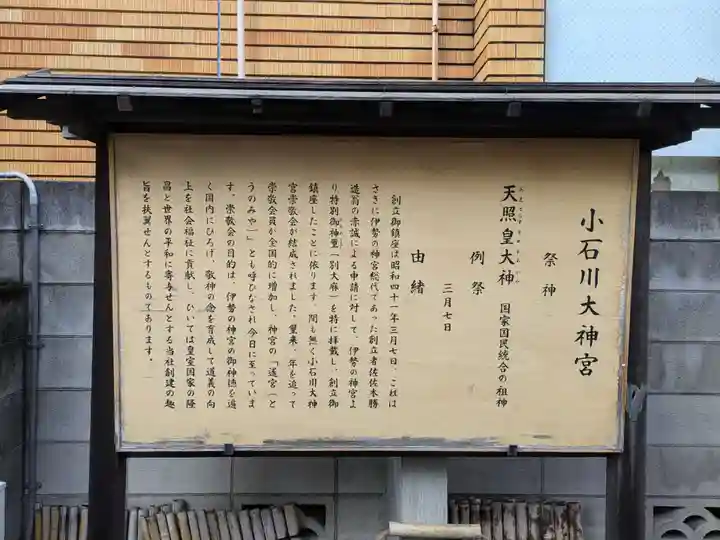 小石川大神宮
祭神
天照皇大神 国家国民統合の祖神
あまてらすすめおおかみ
例祭
三月七日
由緒
創立御鎮座は昭和四十一年三月七日、これは
さきに伊勢の神宮総代であった創立者佐佐木勝
造翁の赤誠による申請に対して、伊勢の神宮よ
り特別御神璽(別大麻)を特に拝戴し、創立御
鎮座したことに依ります。間も無く小石川大神
宮崇敬会が結成されました。爾来、年を追って
崇敬会員が全国的に増加し、神宮の「遥宮(と
うのみや)」とも呼びなされ今日に至っていま
す。崇敬会の目的は、伊勢の神宮の御神徳を遍
く国内にひろげ、敬神の念を育成して道義の向
上を社会福祉に貢献し、ひいては皇室国家の隆
昌と世界の平和に寄与せんとする当社創建の趣
旨を扶翼せんとするものであります。